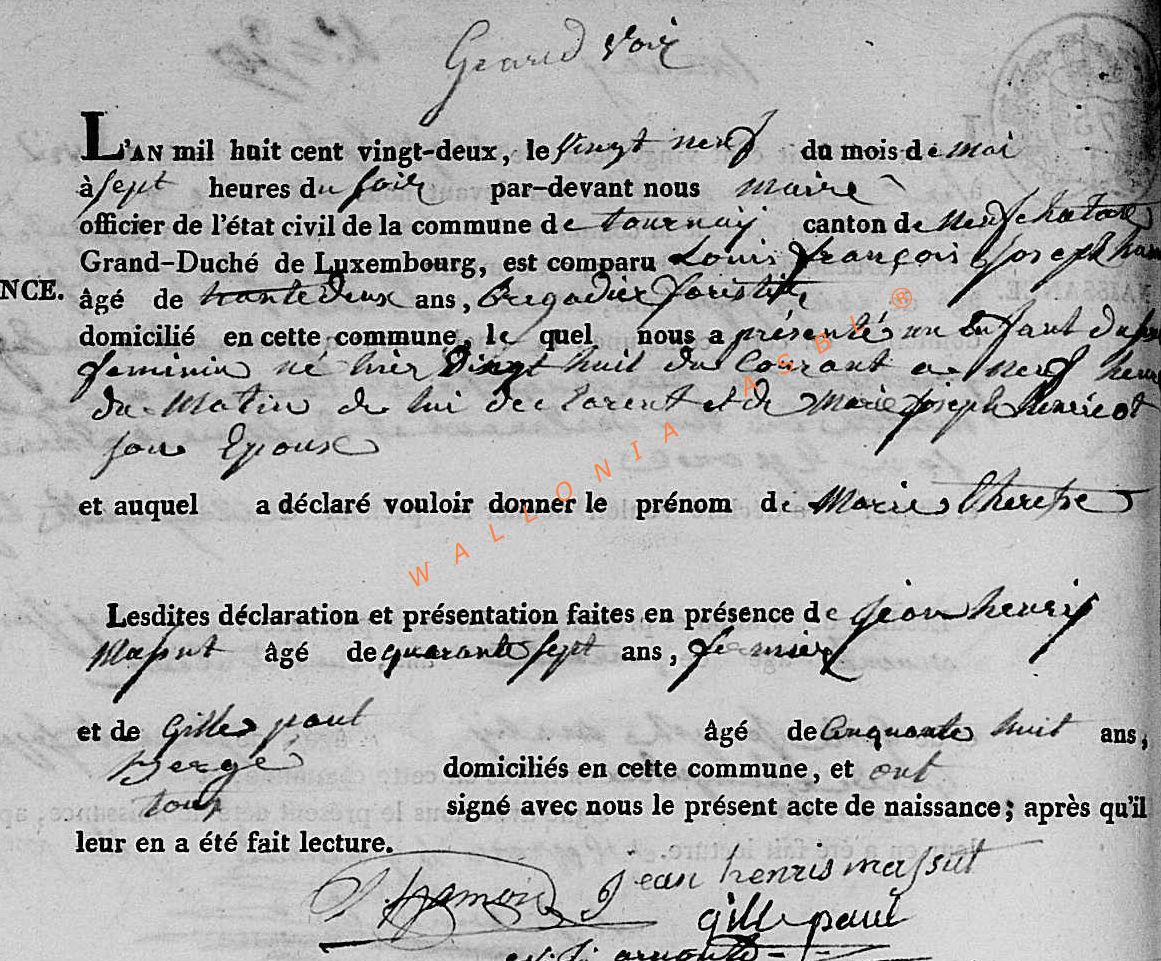 Grand Voir
L'AN mil huit cent vingt-deux, le vingt neuf du mois de mai
à sept heures du soir par-devant nous maire
officier de l'état civil de la commune de tournay canton de neufchateau
Grand-Duché de Luxembourg, est comparu Louis françois Joseph
NCE.
âgé de trante deux ans, Brigadier foristier
domicilié en cette commune, le quel nous a présenté un enfant du
feminin né hier vingt huit du Courant a neuf heur
du Matin de lui declarent et de Marie Joseph henricot
son Epouse
et auquel a déclaré vouloir donner le prénom de Marie therese
Lesdites déclaration et présentation faites en présence de jean henris
Massut âgé de quarante sept ans, fermier
et de Gille paul âgé de cinquante huit ans,
Bergé domiciliés en cette commune, et ont
tous signé avec nous le présent acte de naissance; après qu'il
leur en a été fait lecture.
hamoir jean henris massut
gille paul
WALLONIA ASBL ®